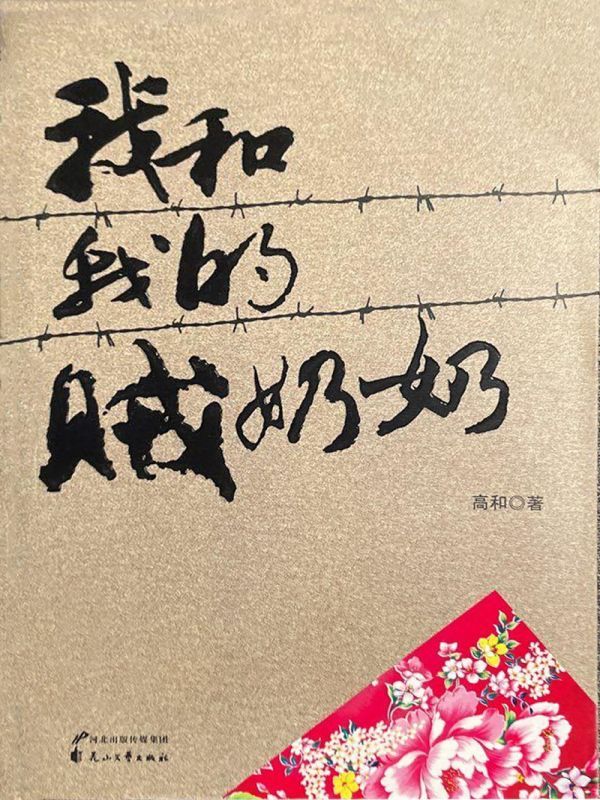 我和
我的
贼奶奶
高和◎著
河北出版传媒集团
花山文艺出版社